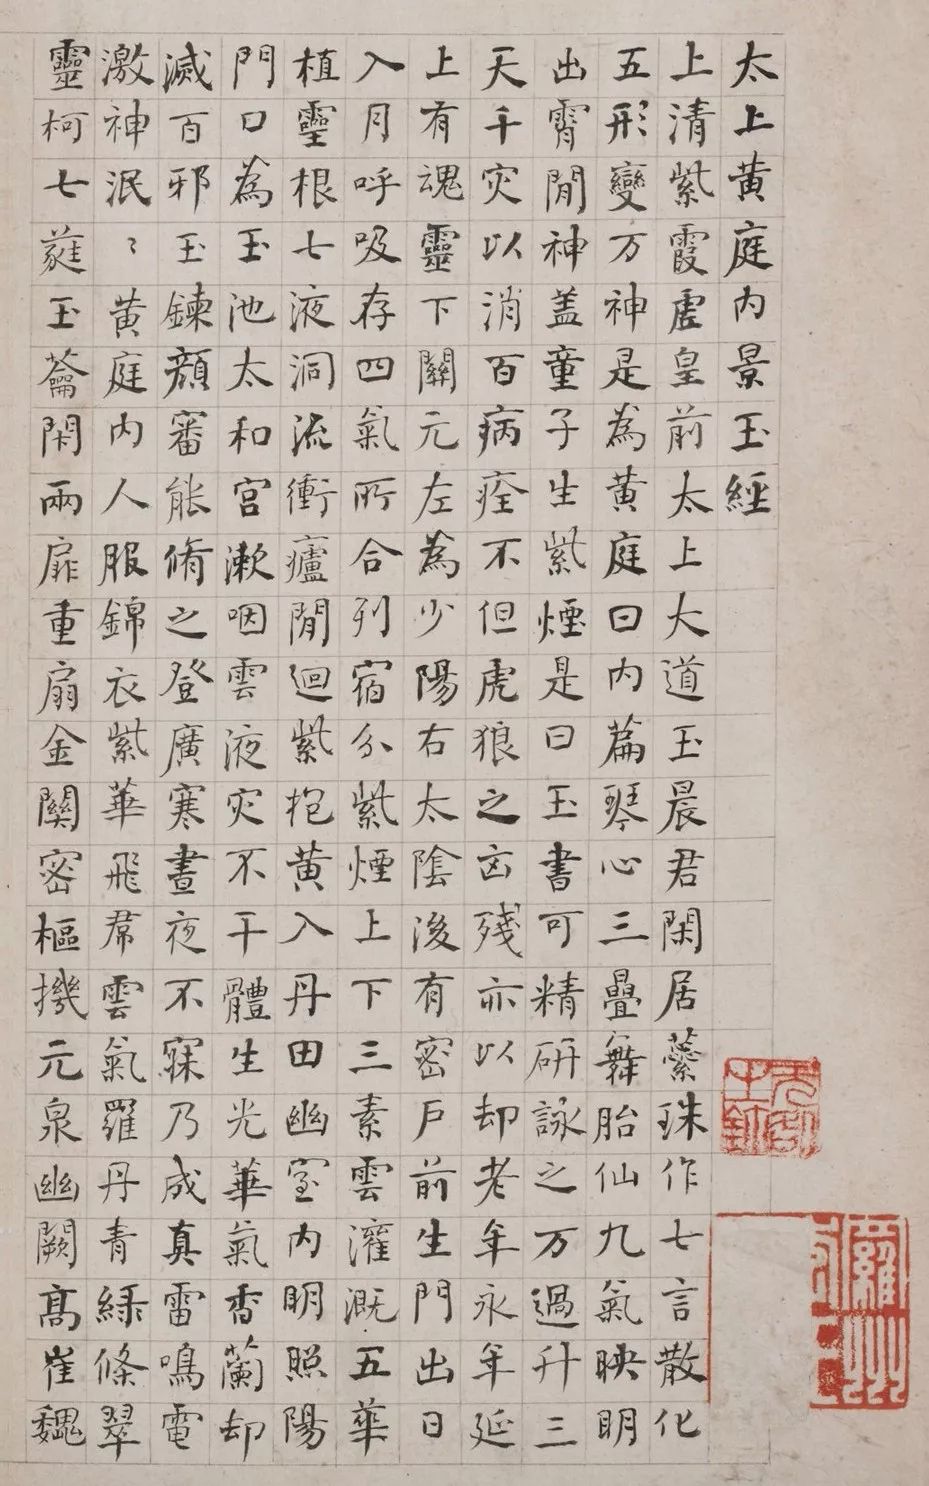 太上黄庭内景玉經
上清紫霞虛皇前太上大道玉晨君閑居蘂珠作七言散化
五形變万神是為黄庭曰内篇琴心三疊舞胎仙九氣映明
出霄閒神盖童子生紫煙是曰玉書可精研詠之万過升三
天千灾以消百病痊不但虎狼之凶殘亦以却老年永年延
上有魂靈下關元左為少陽右太陰後有密戶前生門出日
入月呼吸存四氣所合列宿分紫煙上下三素雲灌溉五華
植靈根七液洞流衝廬閒迴紫抱黄入丹田幽室内明照陽
門口為玉池太和宮漱咽雲液灾不干體生光華氣香蘭却
滅百邪玉鍊顏審能脩之登廣寒晝夜不寐乃成真雷鳴電
激神泯〻黄庭内人服錦衣紫華飛帬雲氣羅丹青緑條翠
靈柯七蕤玉籥閉兩扉重扇金關密樞機元泉幽闕髙崔巍